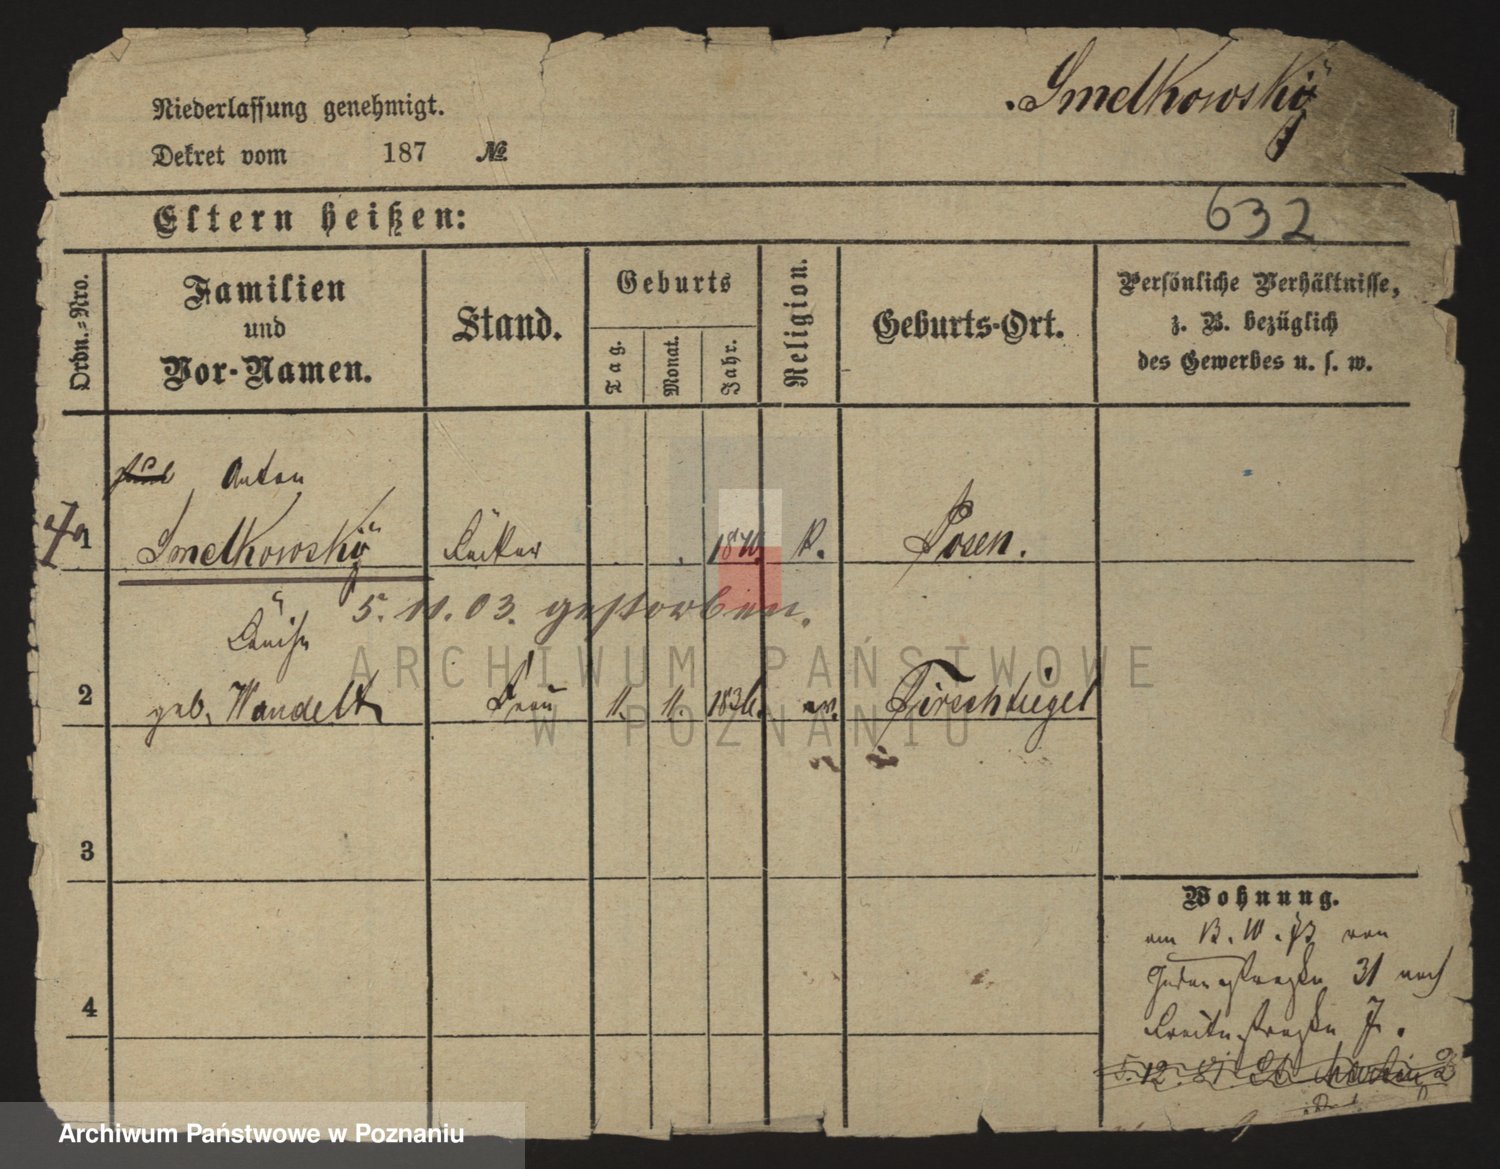 Smelkowski
Niederlassung genehmigt.
Dekret vom 187 №
Eltern heißen:
632
Ordn.=Nro.
Familien
und
Vor-Namen.
Stand.
Geburts
Tag.
Monat.
Jahr.
Religion.
Geburts-Ort.
Persönliche Verhältnisse,
z. B. bezüglich
des Gewerbes u. s. w.
Anton
1 Smelkowski 1840 K. Posen.
5. 11. 03. gestorben.
2 geb. Wandelt Frau 11. 11. 1836. ev. Tirschtiegel
3
4
Wohnung.
am 13. 10. 73 von
31 nach
Breitestraße 7.
5. 12. 81 St. Martin
ARCHIWUM PAŃSTWOWE
W POZNANIU
Archiwum Państwowe w Poznaniu